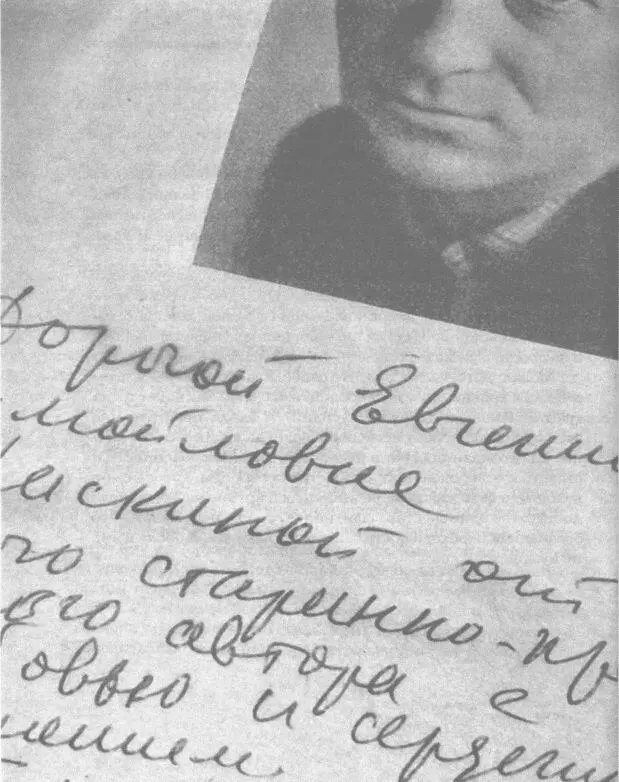 Дорогой Евгении
мойловне
искиной от
го старинно-пр
ого автора с
овью и сердечн
ением